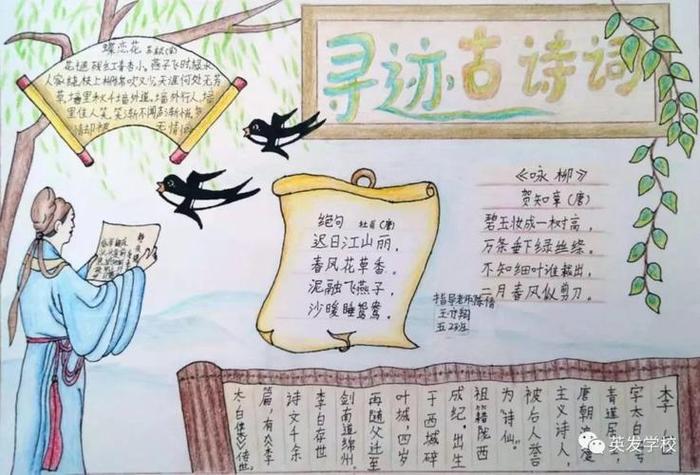 寻迹古诗词
蝶恋花 苏轼(宋)
花褪残红青杏小。燕子飞时,绿水
人家绕。枝上柳绵吹又少,天涯何处无芳
草。墙里秋千墙外道。墙外行人,墙
里佳人笑。笑渐不闻声渐悄。多
情却被无情恼
绝句 杜甫(唐)
迟日江山丽,
春风花草香。
泥融飞燕子,
沙暖睡鸳鸯。
《咏柳》
贺知章(唐)
碧玉妆成一树高,
万条垂下绿丝绦。
不知细叶谁裁出,
二月春风似剪刀。
指导老师陈倩
五2班
李白
字太白,号
青莲居
唐朝浪漫
主义诗人
被后人誉
为“诗仙”。
祖籍陇西
成纪,出生
于西域碎
叶城,四岁
再随父迁至
剑南道绵州。
李白存世
诗文千余
篇,有《李
太白集》传世。
英发学校